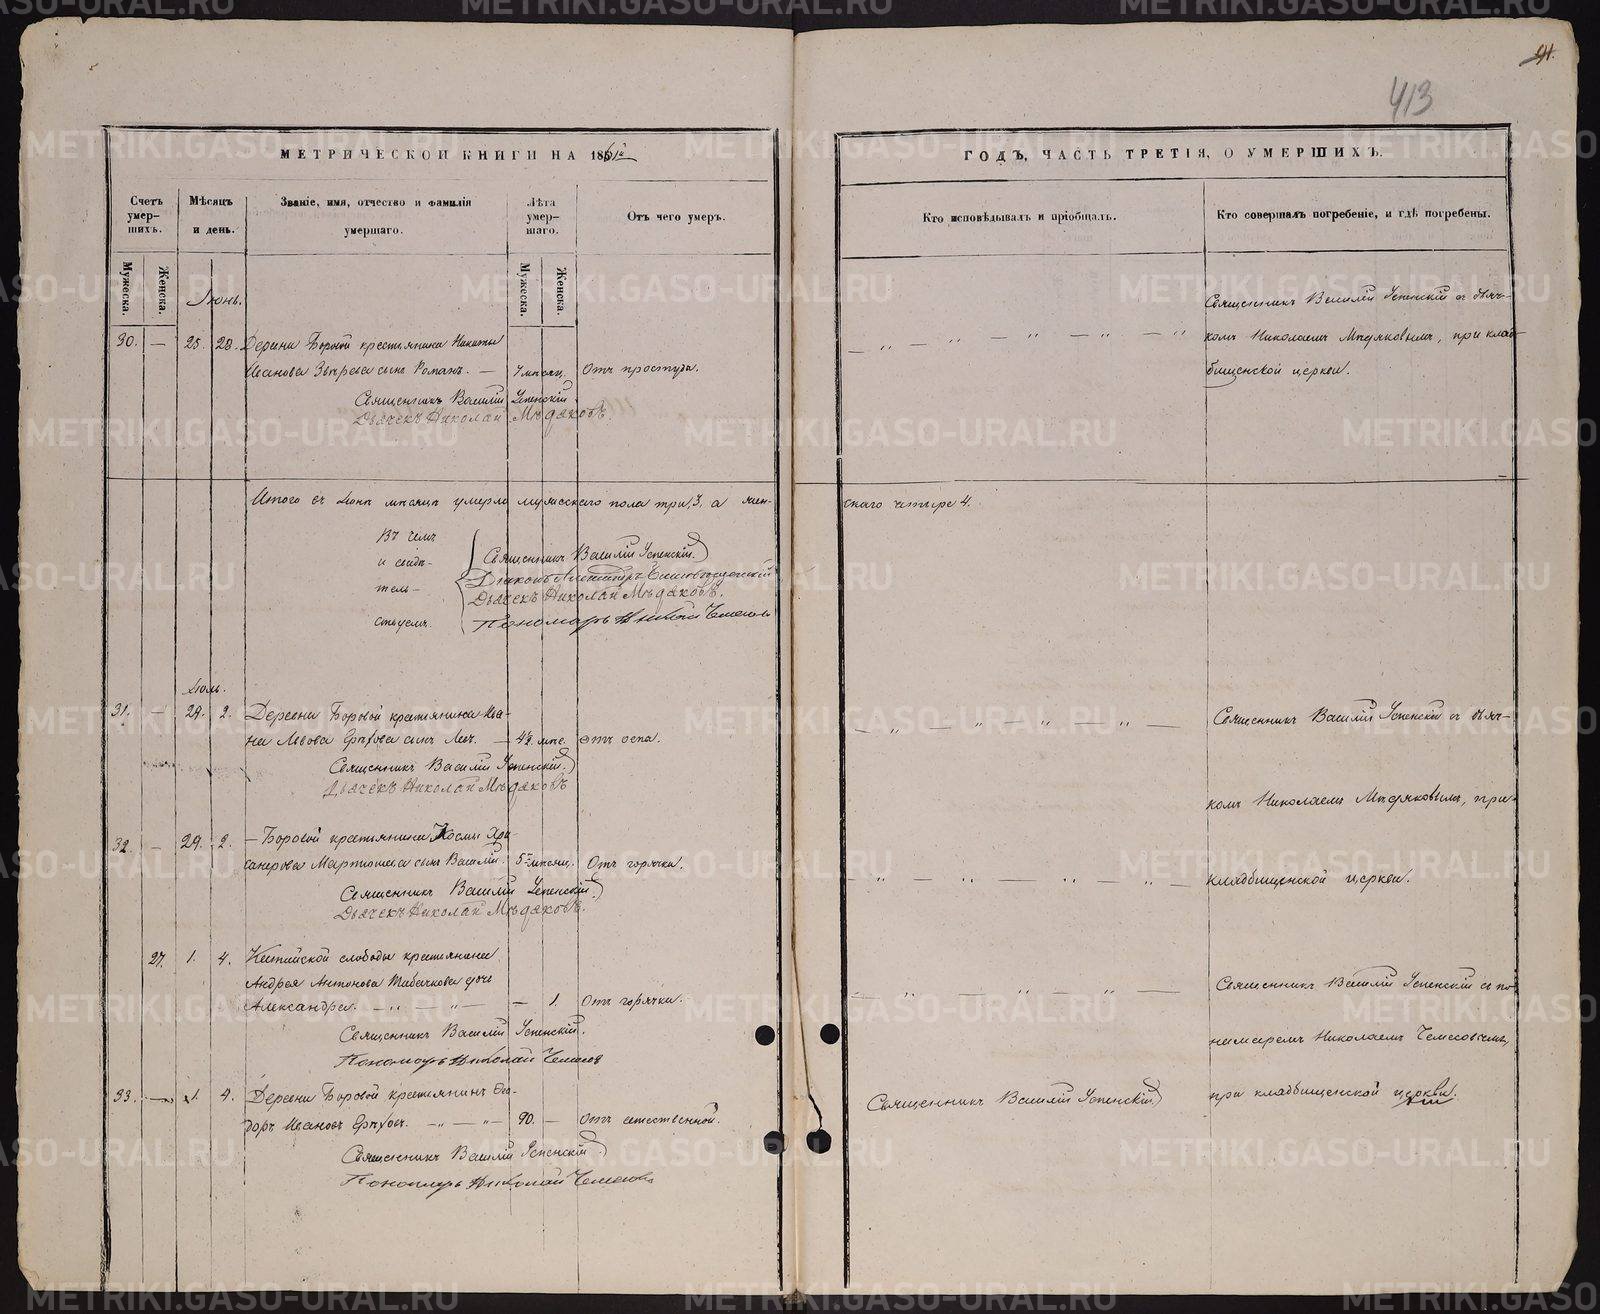 91.
413
МЕТРИЧЕСКОЙ КНИГИ НА 1861й
ГОДЪ, ЧАСТЬ ТРЕТІЯ, О УМЕРШИХЪ.
Счетъ умер-шихъ.
Мѣсяцъ и день.
Званіе, имя, отчество и фамилія умершаго.
Лѣта умер-шаго.
Отъ чего умеръ.
Кто исповѣдывалъ и пріобщалъ.
Кто совершалъ погребеніе, и гдѣ погребены.
Мужеска.
Женска.
Мужеска.
Женска.
Іюнь.
30. — 25. 28. Деревни Боровой крестьянина Никиты
Иванова Звѣрева сынъ Романъ. — мѣсяц. Отъ простуды.
Священникъ Василій Успенскій
Дьячекъ Николай Мѣдяковъ.
Священникъ Василій Успенскій съ дьяч-
комъ Николаемъ Мѣдяковымъ, при клад-
бищенской церкви.
Итого въ Іюнѣ мѣсяцѣ умерло мужескаго пола три, 3, а жен-
скаго четыре 4.
Въ чемъ
и свидѣ-
тель-
ствуемъ.
Священникъ Василій Успенскій
Діаконъ
Дьячекъ Николай Мѣдяковъ.
Пономарь Николай Чемесовъ
Іюль.
31. — 29. 2. Деревни Боровой крестьянина Ива-
на Львова сынъ Левъ. — мѣс. Отъ оспы.
Священникъ Василій Успенскій
Дьячекъ Николай Мѣдяковъ
Священникъ Василій Успенскій съ дьяч-
комъ Николаемъ Мѣдяковымъ, при
кладбищенской церкви.
32. — 29. 2. — Боровой крестьянина Космы Хри-
санфова сынъ Василій. 5 мѣсяц. Отъ горячки.
Священникъ Василій Успенскій
Дьячекъ Николай Мѣдяковъ.
27. 1. 4. слободы крестьянина
Андрея Антонова Табачкова дочь
Александра. — 1. Отъ горячки.
Священникъ Василій Успенскій.
Пономарь Николай Чемесов
Священникъ Василій Успенскій съ по-
номаремъ Николаемъ Чемесовымъ,
при кладбищенской церкви.
33. — 1. 4. Деревни Боровой крестьянинъ Ѳео-
доръ Ивановъ 90. — Отъ естественной.
Священникъ Василій Успенскій
Священникъ Василій Успенскій
Пономарь Николай Чемесовъ
METRIKI.GASO-URAL.RU